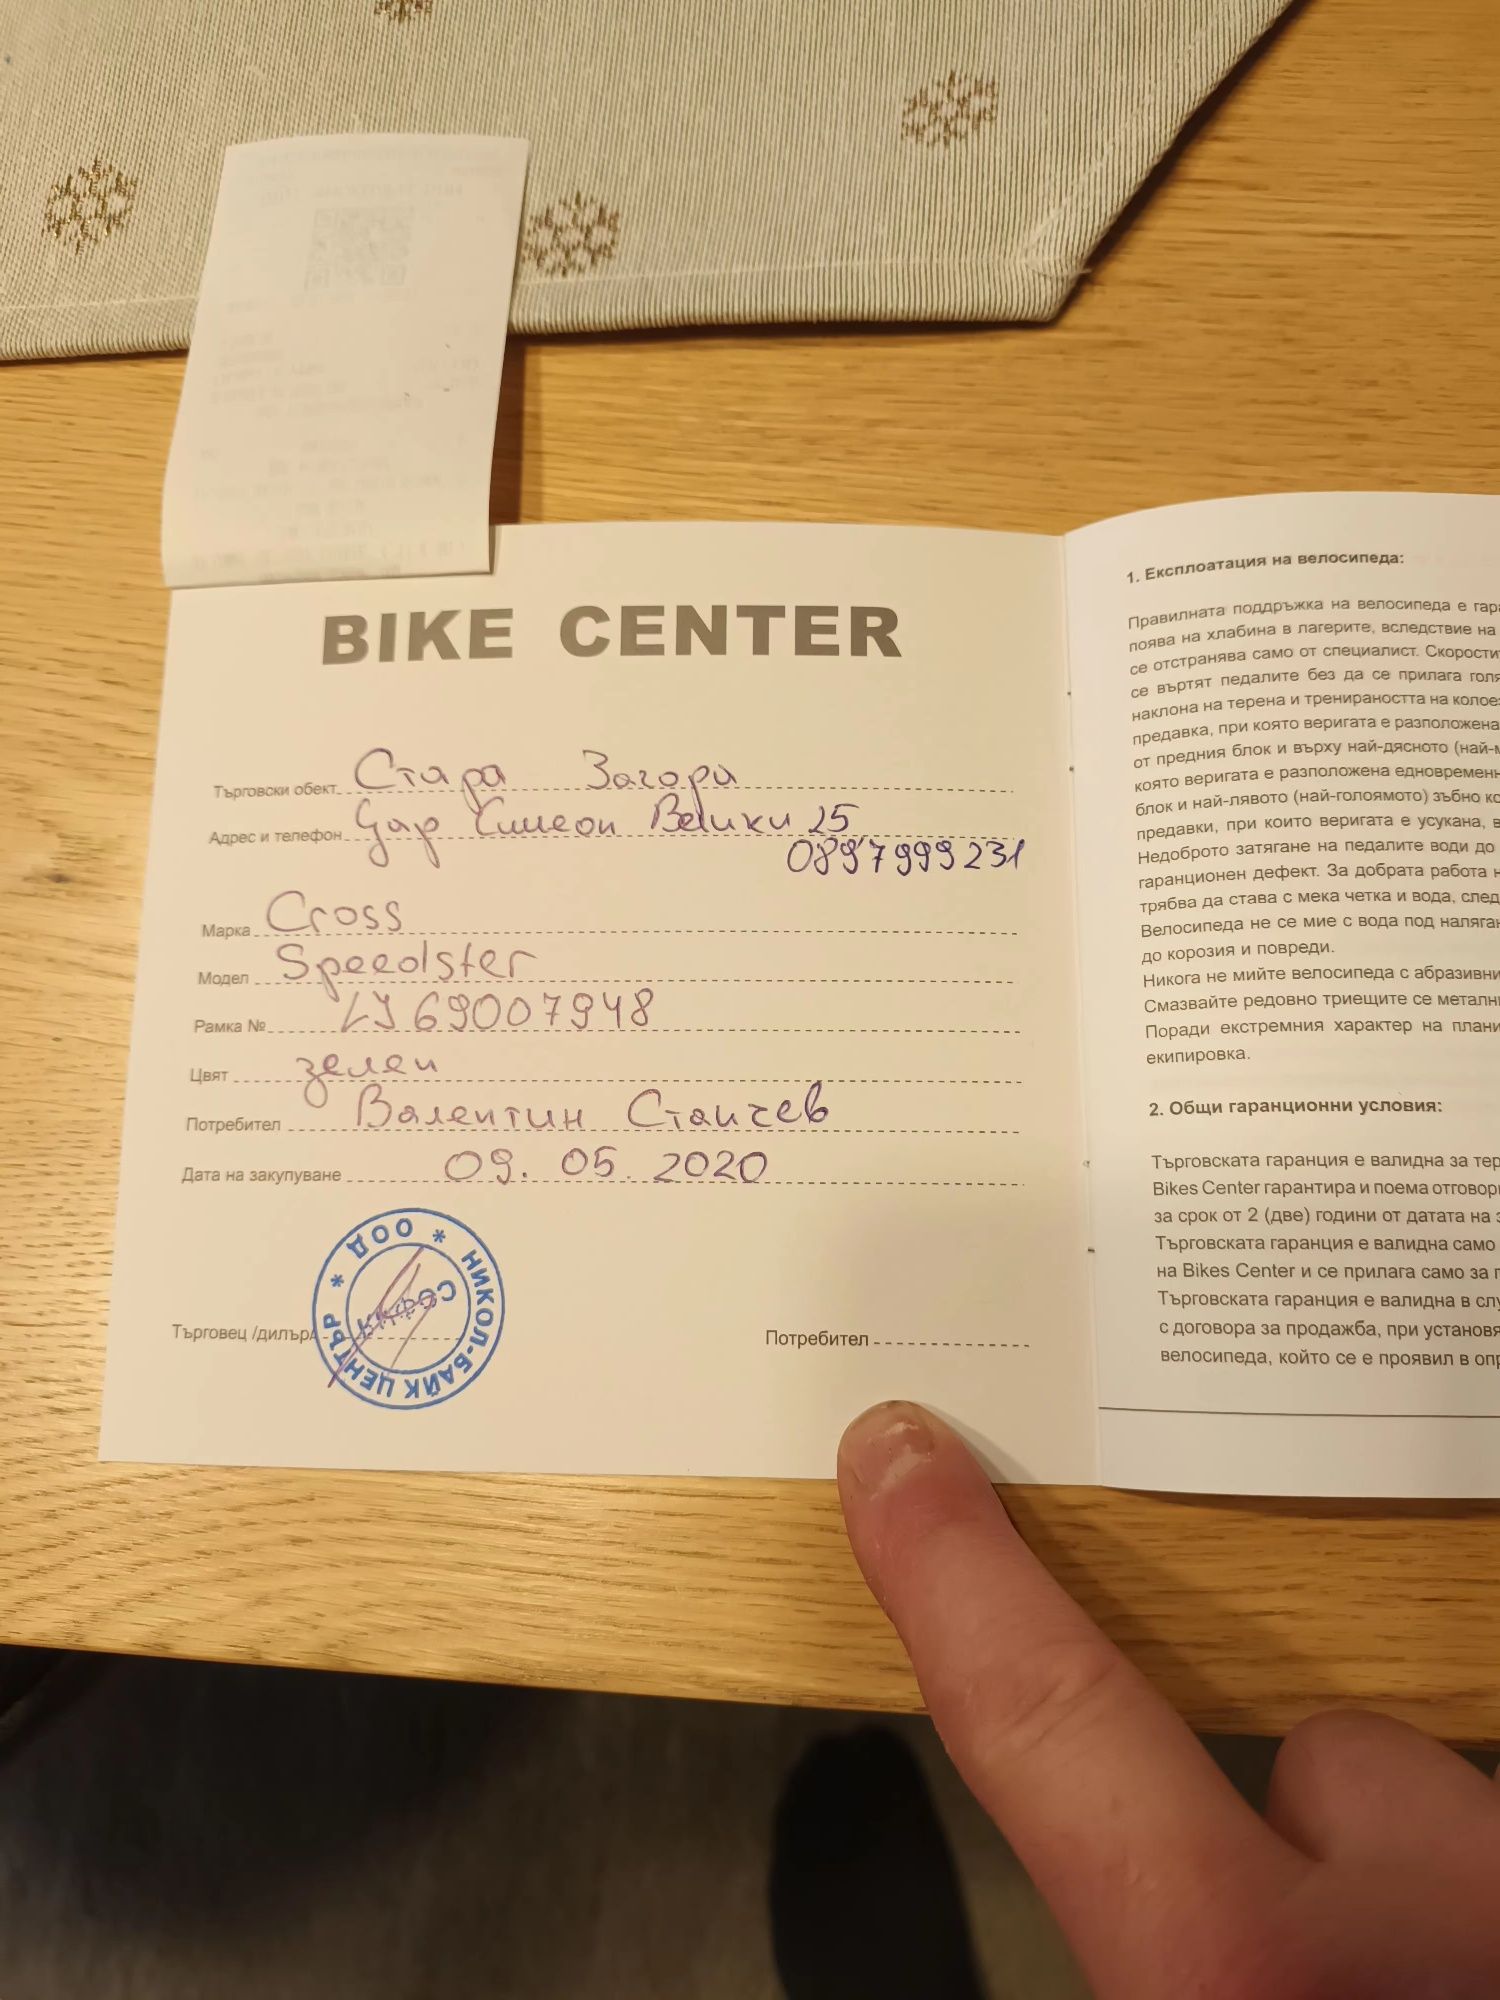 BIKE CENTER
Търговски обект Стара Загора
Адрес и телефон Цар Симеон Велики 25
0897999231
Марка Cross
Модел Speedster
Рамка № LJ69007948
Цвят зелен
Потребител Валентин Станчев
Дата на закупуване 09.05.2020
Търговец /дилър
НИКОЛ-БАЙК ЦЕНТЪР * ООД *
СОФИЯ
Потребител
1. Експлоатация на велосипеда:
Правилната поддръжка на велосипеда е гара
поява на хлабина в лагерите, вследствие на
се отстранява само от специалист. Скорости
се въртят педалите без да се прилага голя
наклона на терена и тренираността на колое
предавка, при която веригата е разположена
от предния блок и върху най-дясното (най-м
която веригата е разположена едновремен
блок и най-лявото (най-голоямото) зъбно ко
предавки, при които веригата е усукана, в
Недоброто затягане на педалите води до
гаранционен дефект. За добрата работа н
трябва да става с мека четка и вода, след
Велосипеда не се мие с вода под наляган
до корозия и повреди.
Никога не мийте велосипеда с абразивни
Смазвайте редовно триещите се металн
Поради екстремния характер на плани
екипировка.
2. Общи гаранционни условия:
Търговската гаранция е валидна за тер
Bikes Center гарантира и поема отговор
за срок от 2 (две) години от датата на з
Търговската гаранция е валидна само
на Bikes Center и се прилага само за п
Търговската гаранция е валидна в слу
с договора за продажба, при установя
велосипеда, който се е проявил в опр